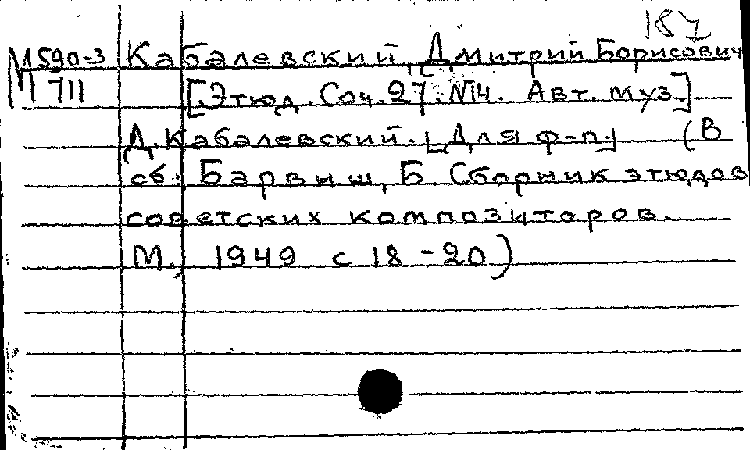 187
М590-3 Кабалевский, Дмитрий Борисович
М711 [Этюд. Соч. 27. №4. Авт. муз.]
Д. Кабалевский. [Для ф-п.] (В
сб: Барвиш, Б Сборник этюдов
советских композиторов.
М. 1949 с 18-20)